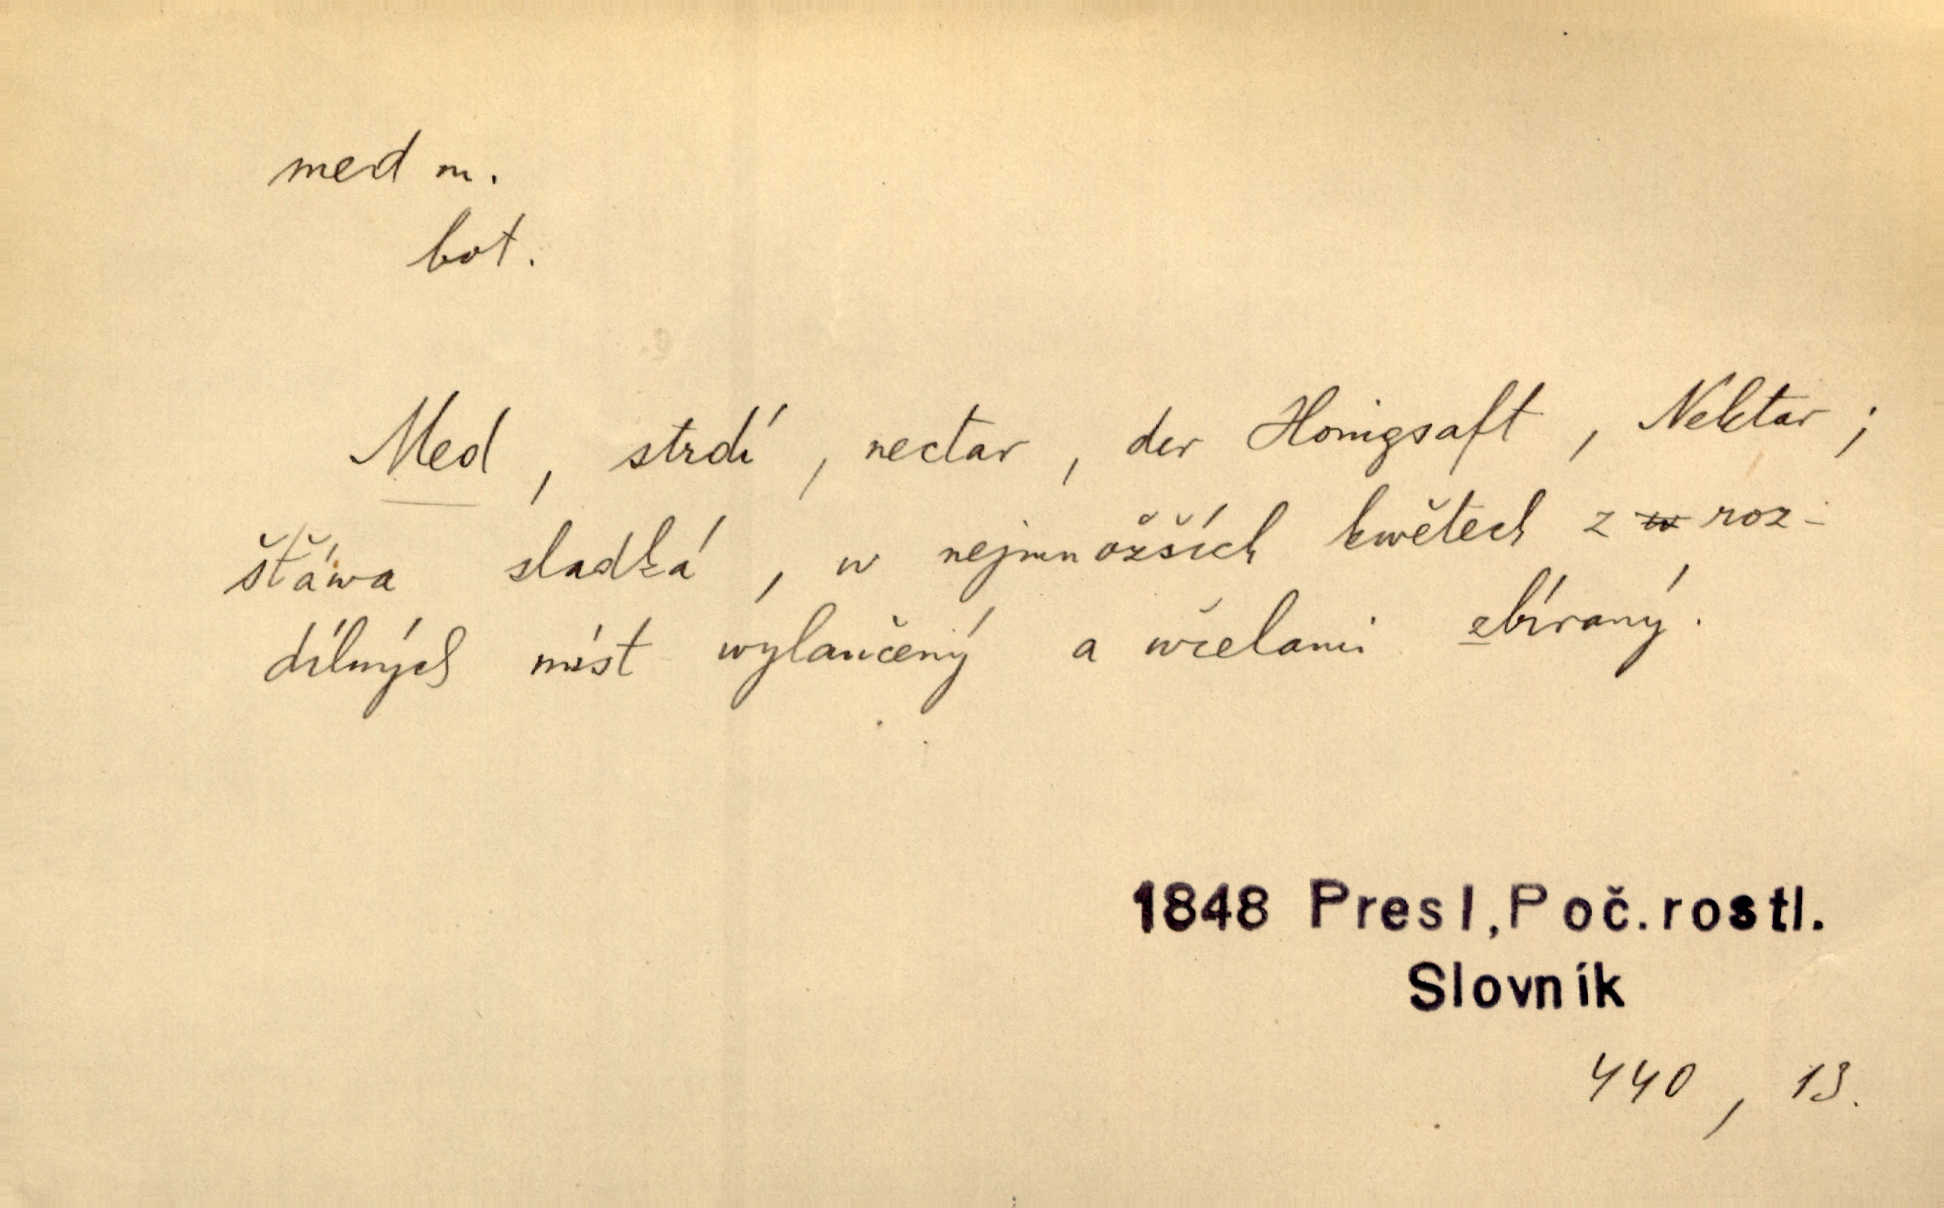 med m.
bot.
Med, strdí, nectar, der Honigsaft, Nektar;
šťáwa sladká, w nejmnožších kwětech z w roz-
dílných míst wylaučený a wčelami zbíraný.
1848 Presl, Poč. rostl.
Slovník
440, 13.